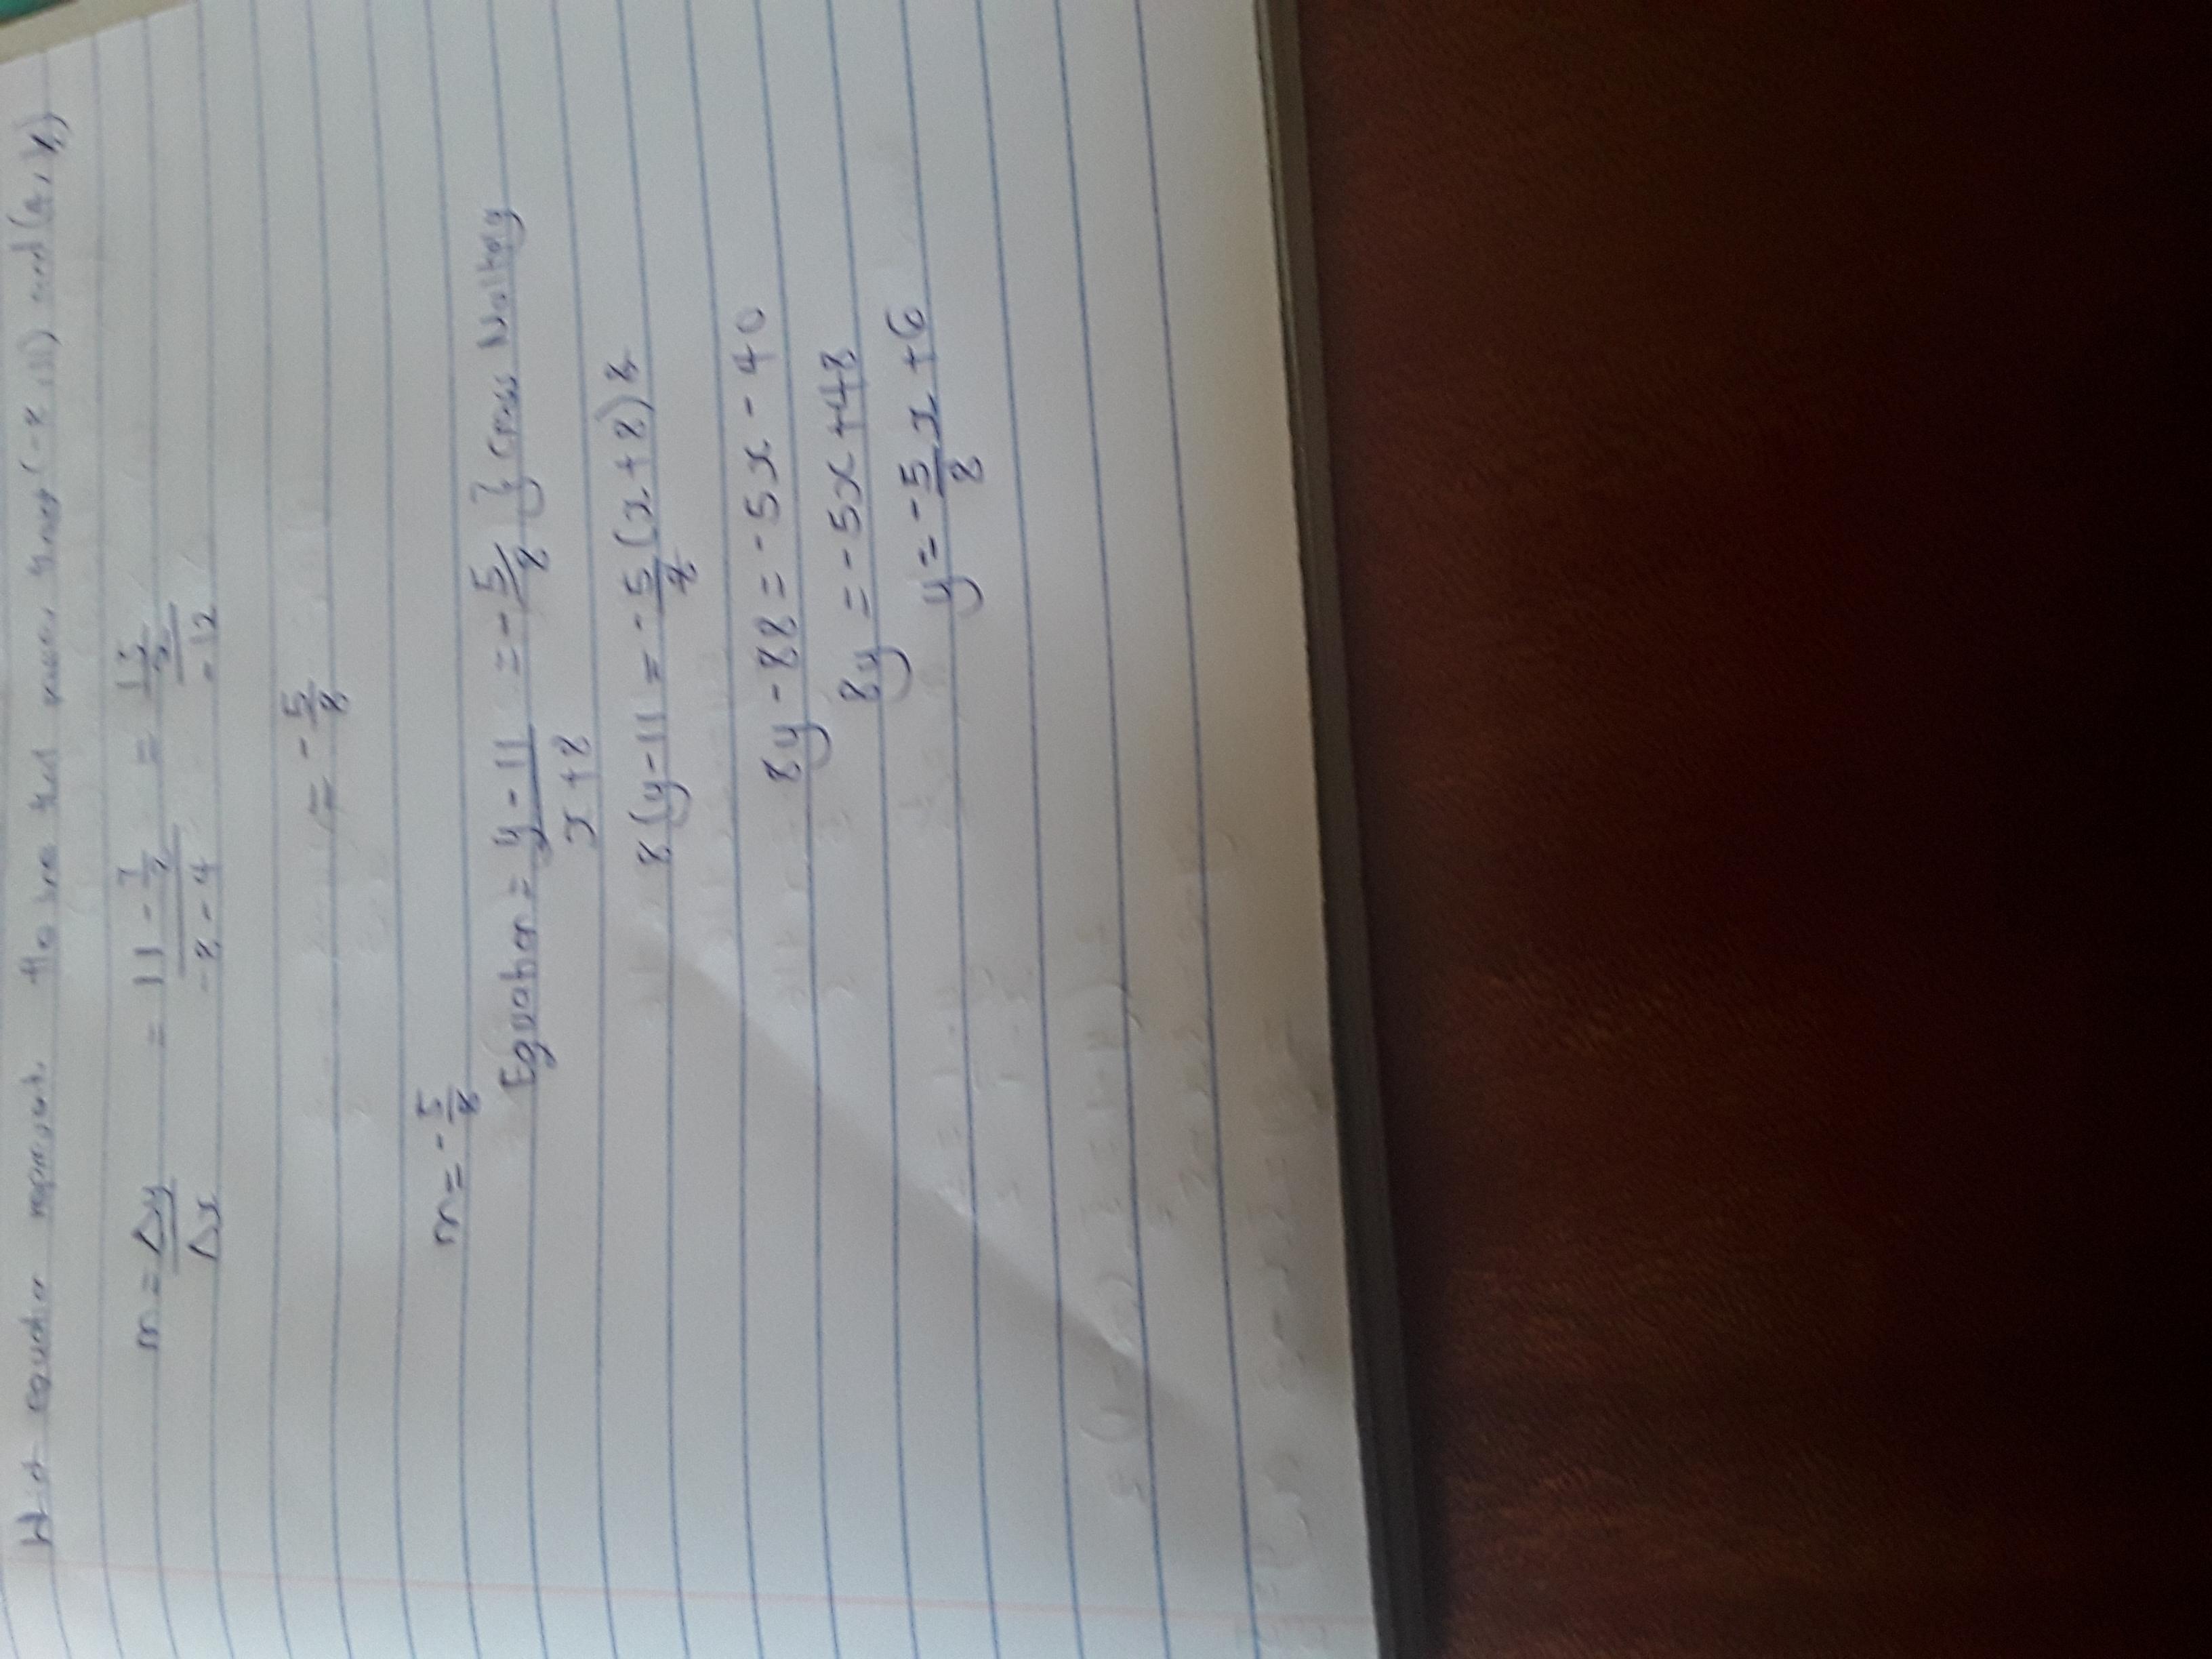 What equation represents the line that passes through (-8,11) and (4, 7/2)
m = Δy/Δx = 11 - 7/2 / -8 - 4 = 15/2 / -12
= -5/8
m = -5/8
Equation = y - 11 / x + 8 = -5/8 } Cross Multiply
8(y - 11 = -5/8 (x + 8) 8
8y - 88 = -5x - 40
8y = -5x + 48
y = -5/8 x + 6